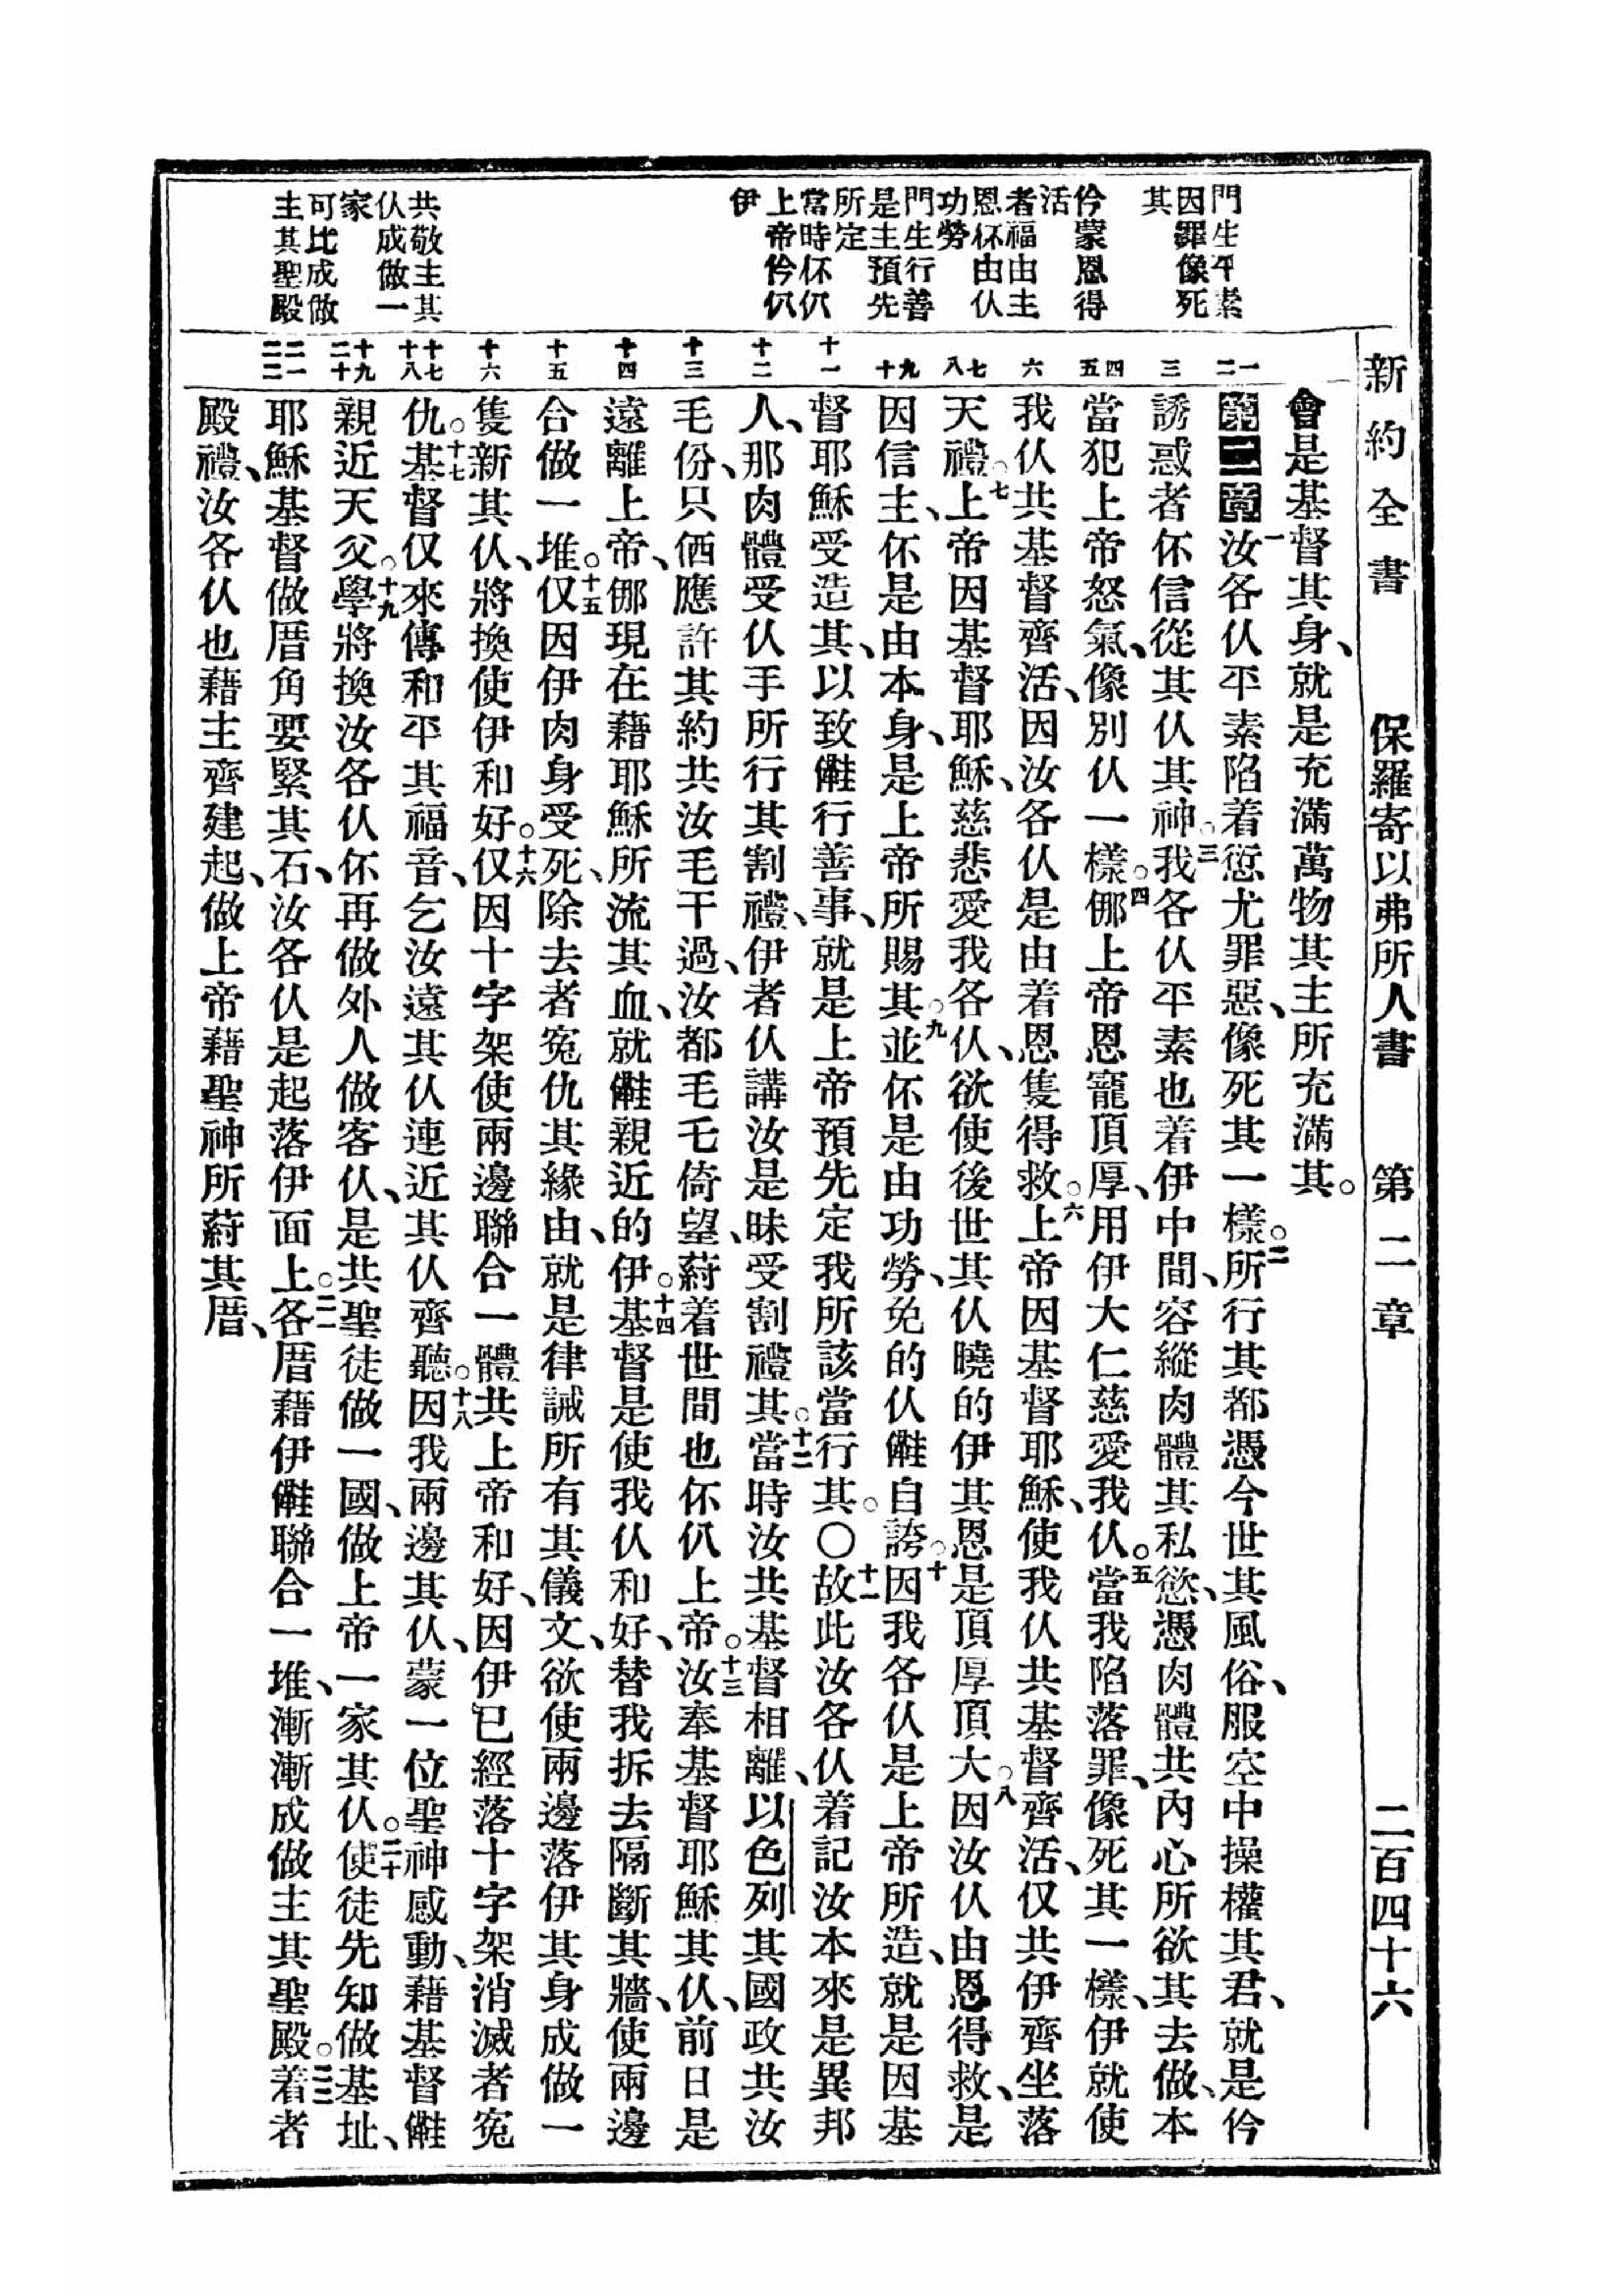 新約全書 保羅寄以弗所人書 第二章 二百四十六
門生平素
因罪像死
其
伶蒙恩得
活
者福由主
恩怀由仫
功勞
門生行善
是主預先
所定
當時怀仈
上帝伶仈
伊
共敬主其
仫成做一
家
可比成做
主其聖殿
一 二
三
四 五
六
七 八
九 十
十一
十二
十三
十四
十五
十六
十七 十八
十九 二十
二一 二二
會是基督其身、就是充滿萬物其主所充滿其。
第二章一汝各仫平素陷着愆尤罪惡、像死其一樣。二所行其都憑今世其風俗、服空中操權其君、就是伶
誘惑者怀信從其仫其神。三我各仫平素也着伊中間、容縱肉體其私慾、憑肉體共內心所欲其去做、本
當犯上帝怒氣、像別仫一樣。四倻上帝恩寵頂厚、用伊大仁慈愛我仫。五當我陷落罪、像死其一樣、伊就使
我仫共基督齊活、因汝各仫是由着恩隻得救。六上帝因基督耶穌、使我仫共基督齊活、仅共伊齊坐落
天禮。七上帝因基督耶穌、慈悲愛我各仫、欲使後世其仫曉的伊其恩是頂厚頂大。八因汝仫由恩得救、是
因信主、怀是由本身、是上帝所賜其。九並怀是由功勞、免的仫𠋡自誇。十因我各仫是上帝所造、就是因基
督耶穌受造其、以致𠋡行善事、就是上帝預先定我所該當行其。〇十一故此汝各仫着記汝本來是異邦
人、那肉體受仫手所行其割禮、伊者仫講汝是昧受割禮其。十二當時汝共基督相離、以色列其國政共汝
毛份、只㑚應許其約共汝毛干過、汝都毛乇倚望、葤着世間也怀仈上帝。十三汝奉基督耶穌其仫、前日是
遠離上帝、倻現在藉耶穌所流其血、就𠋡親近的伊。十四基督是使我仫和好、替我拆去隔斷其牆、使兩邊
合做一堆。十五仅因伊肉身受死、除去者冤仇其緣由、就是律誡所有其儀文、欲使兩邊落伊其身成做一
隻新其仫、將換使伊和好。十六仅因十字架使兩邊聯合一體共上帝和好、因伊已經落十字架消滅者冤
仇。十七基督仅來傳和平其福音、乞汝遠其仫連近其仫齊聽。十八因我兩邊其仫、蒙一位聖神感動、藉基督𠋡
親近天父。十九學將換汝各仫怀再做外人做客仫、是共聖徒做一國、做上帝一家其仫。二十使徒先知做基址、
耶穌基督做厝角要緊其石、汝各仫是起落伊面上。二一各厝藉伊𠋡聯合一堆、漸漸成做主其聖殿。二二着者
殿禮、汝各仫也藉主齊建起、做上帝藉聖神所葤其厝、